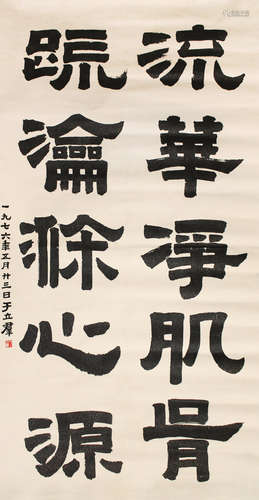 流華淨肌骨
疏瀹滌心源
一九七六年五月廿三日于立群